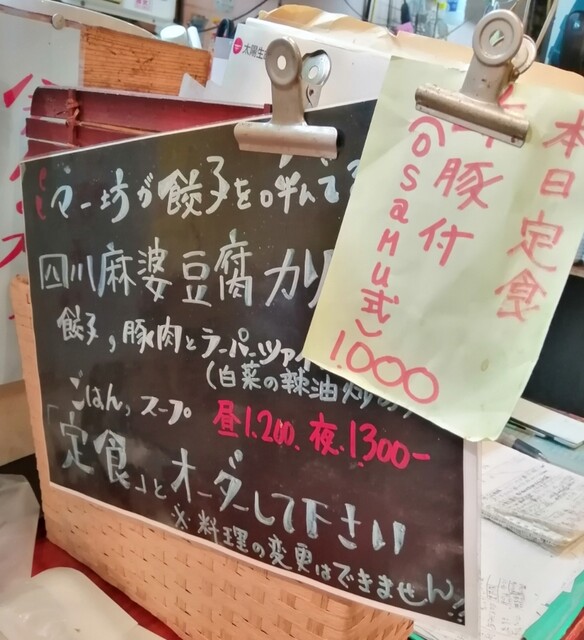 太陽生
マー坊が餃子を呼んで
四川麻婆豆腐カリ
餃子,豚肉とラーパーツァイ
(白菜の辣油炒め)
ごはん,スープ
昼1.200、夜.1300-
「定食」とオーダーして下さい
※料理の変更はできません
本日定食
豚付
(OsaMu式)
1.000